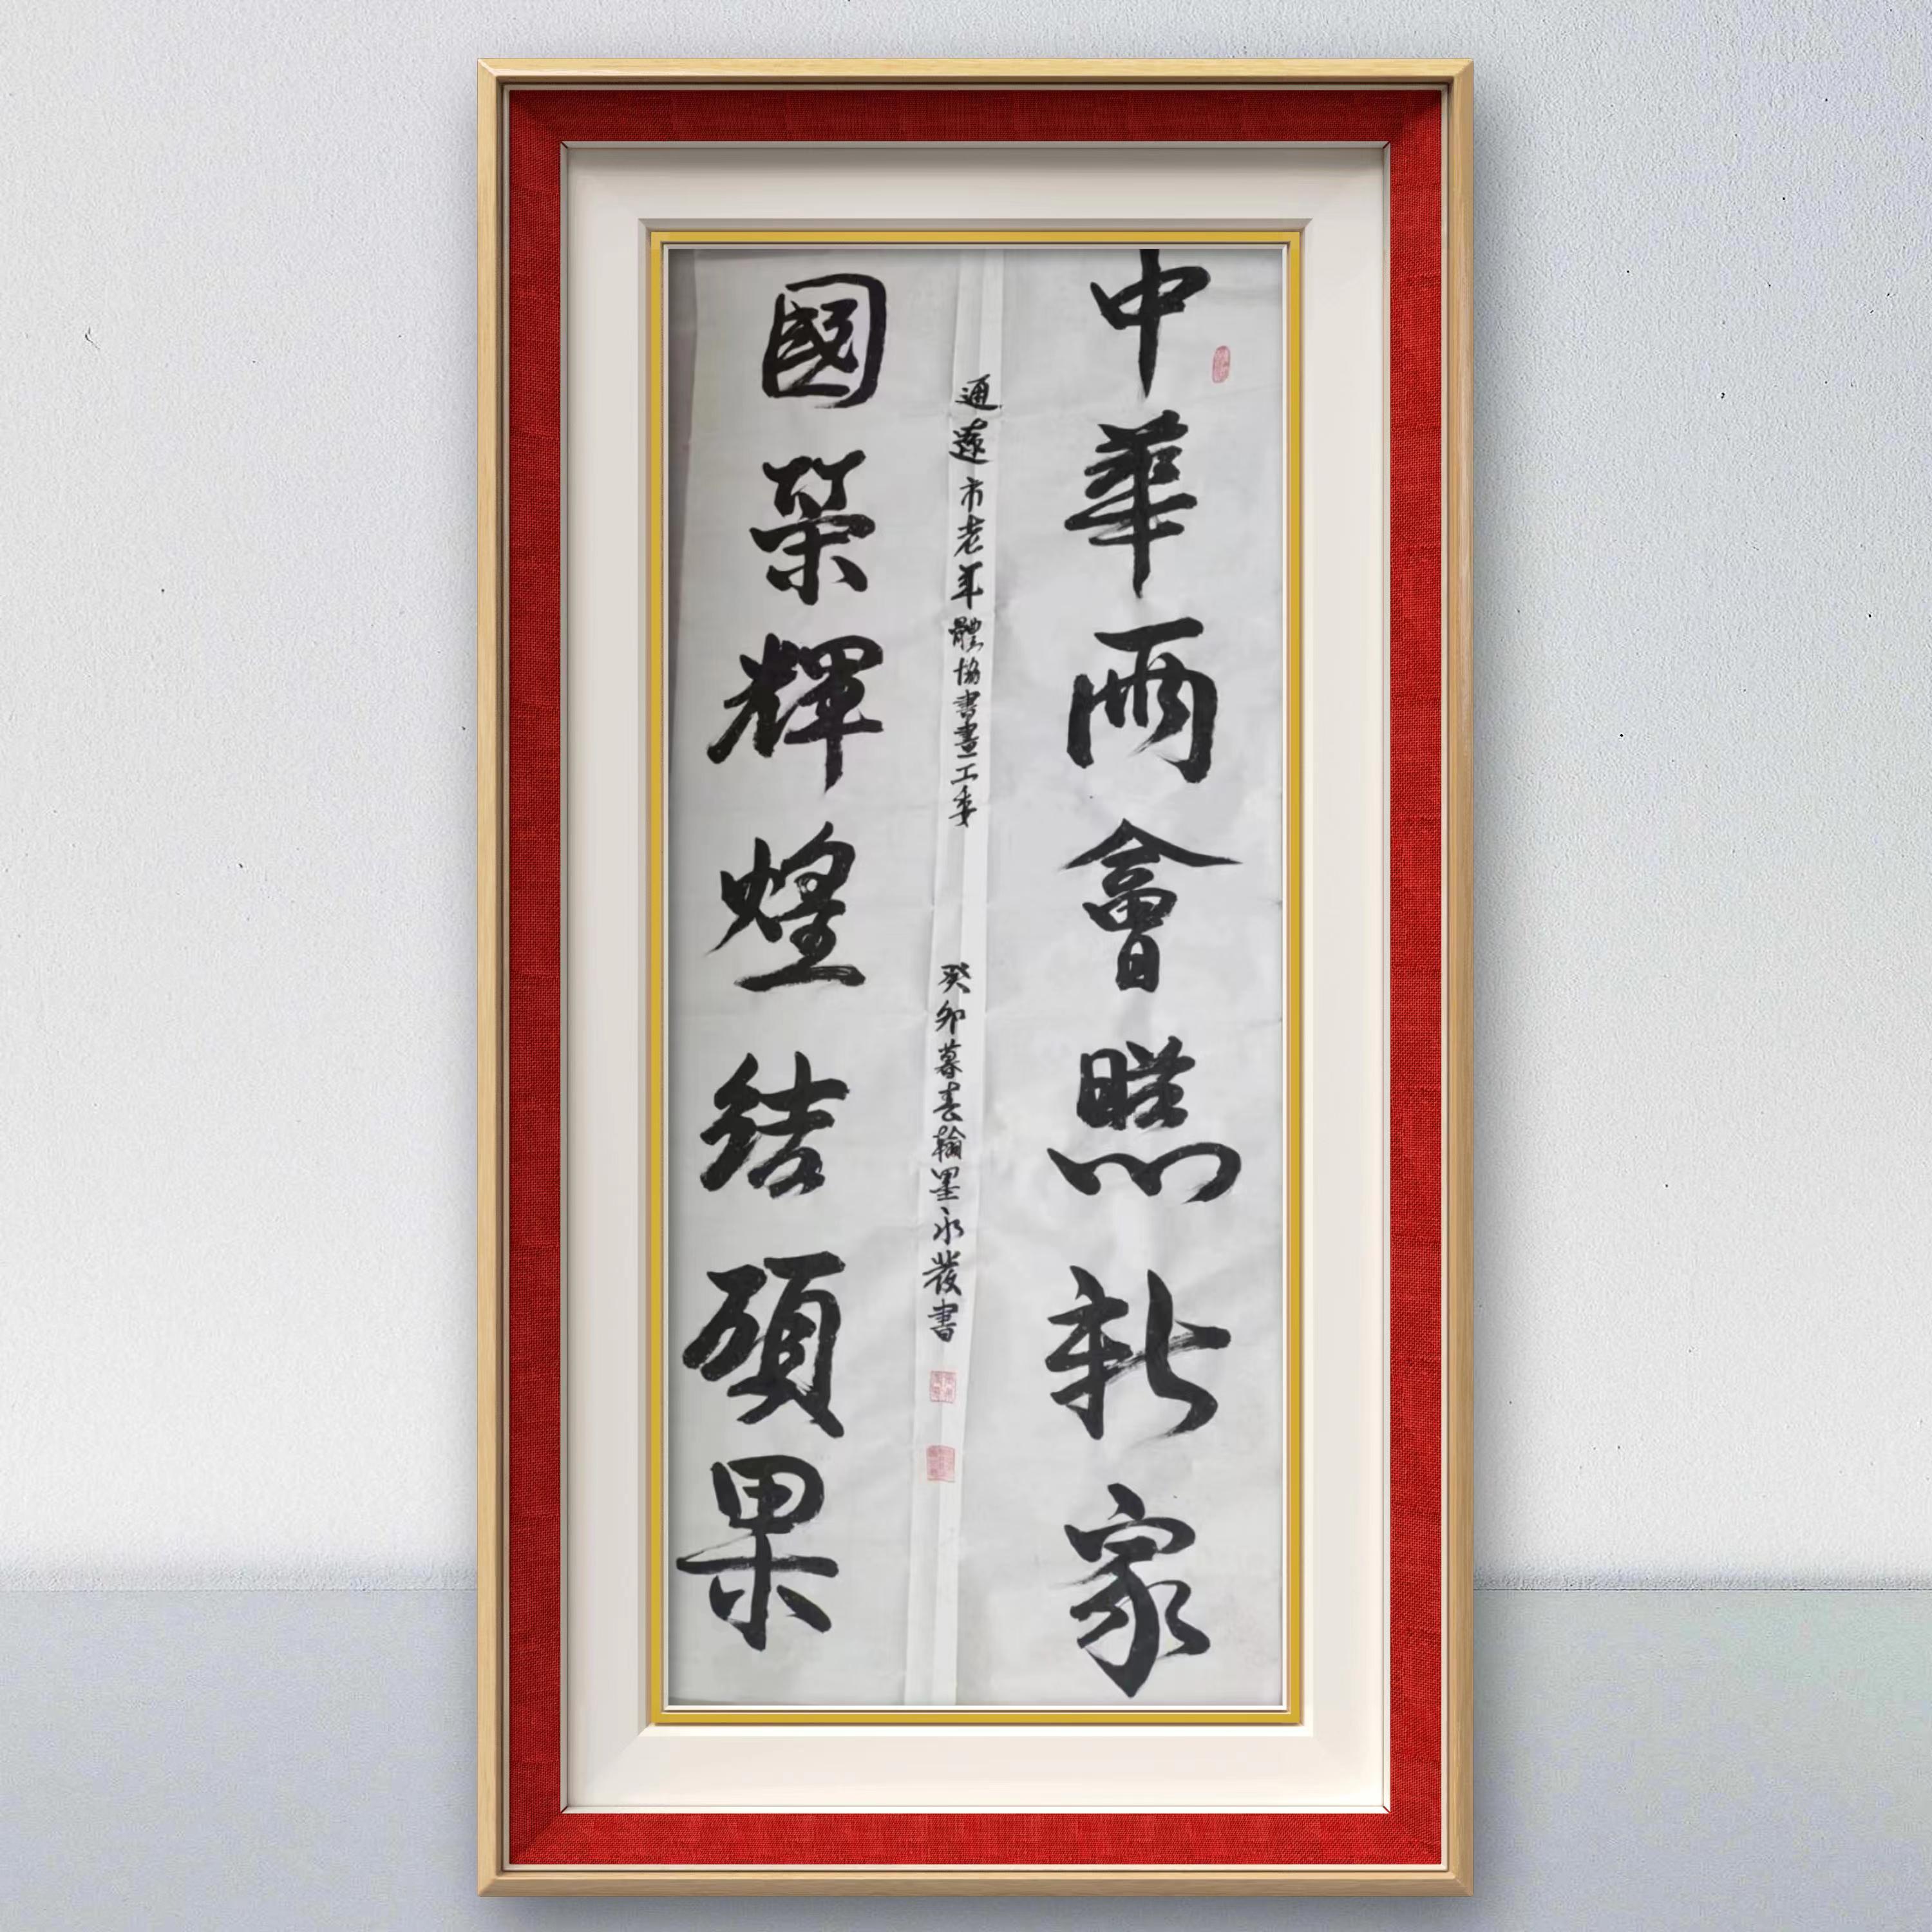 中華兩會照新家
通遼市老年體協書畫工委
癸卯暮春翰墨永發書
國榮輝煌結碩果